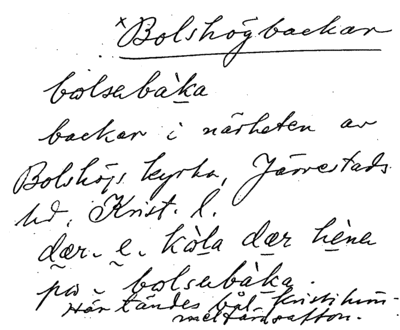 ×Bolshögbackar
bolsabàka
backar i närheten av
Bolshögs kyrka, Järrestads
hd, Krist. l.
dær. e. kòla dær hèna
på bolsabàka.
Här tändes bål Kristi him-
melfärdsafton.